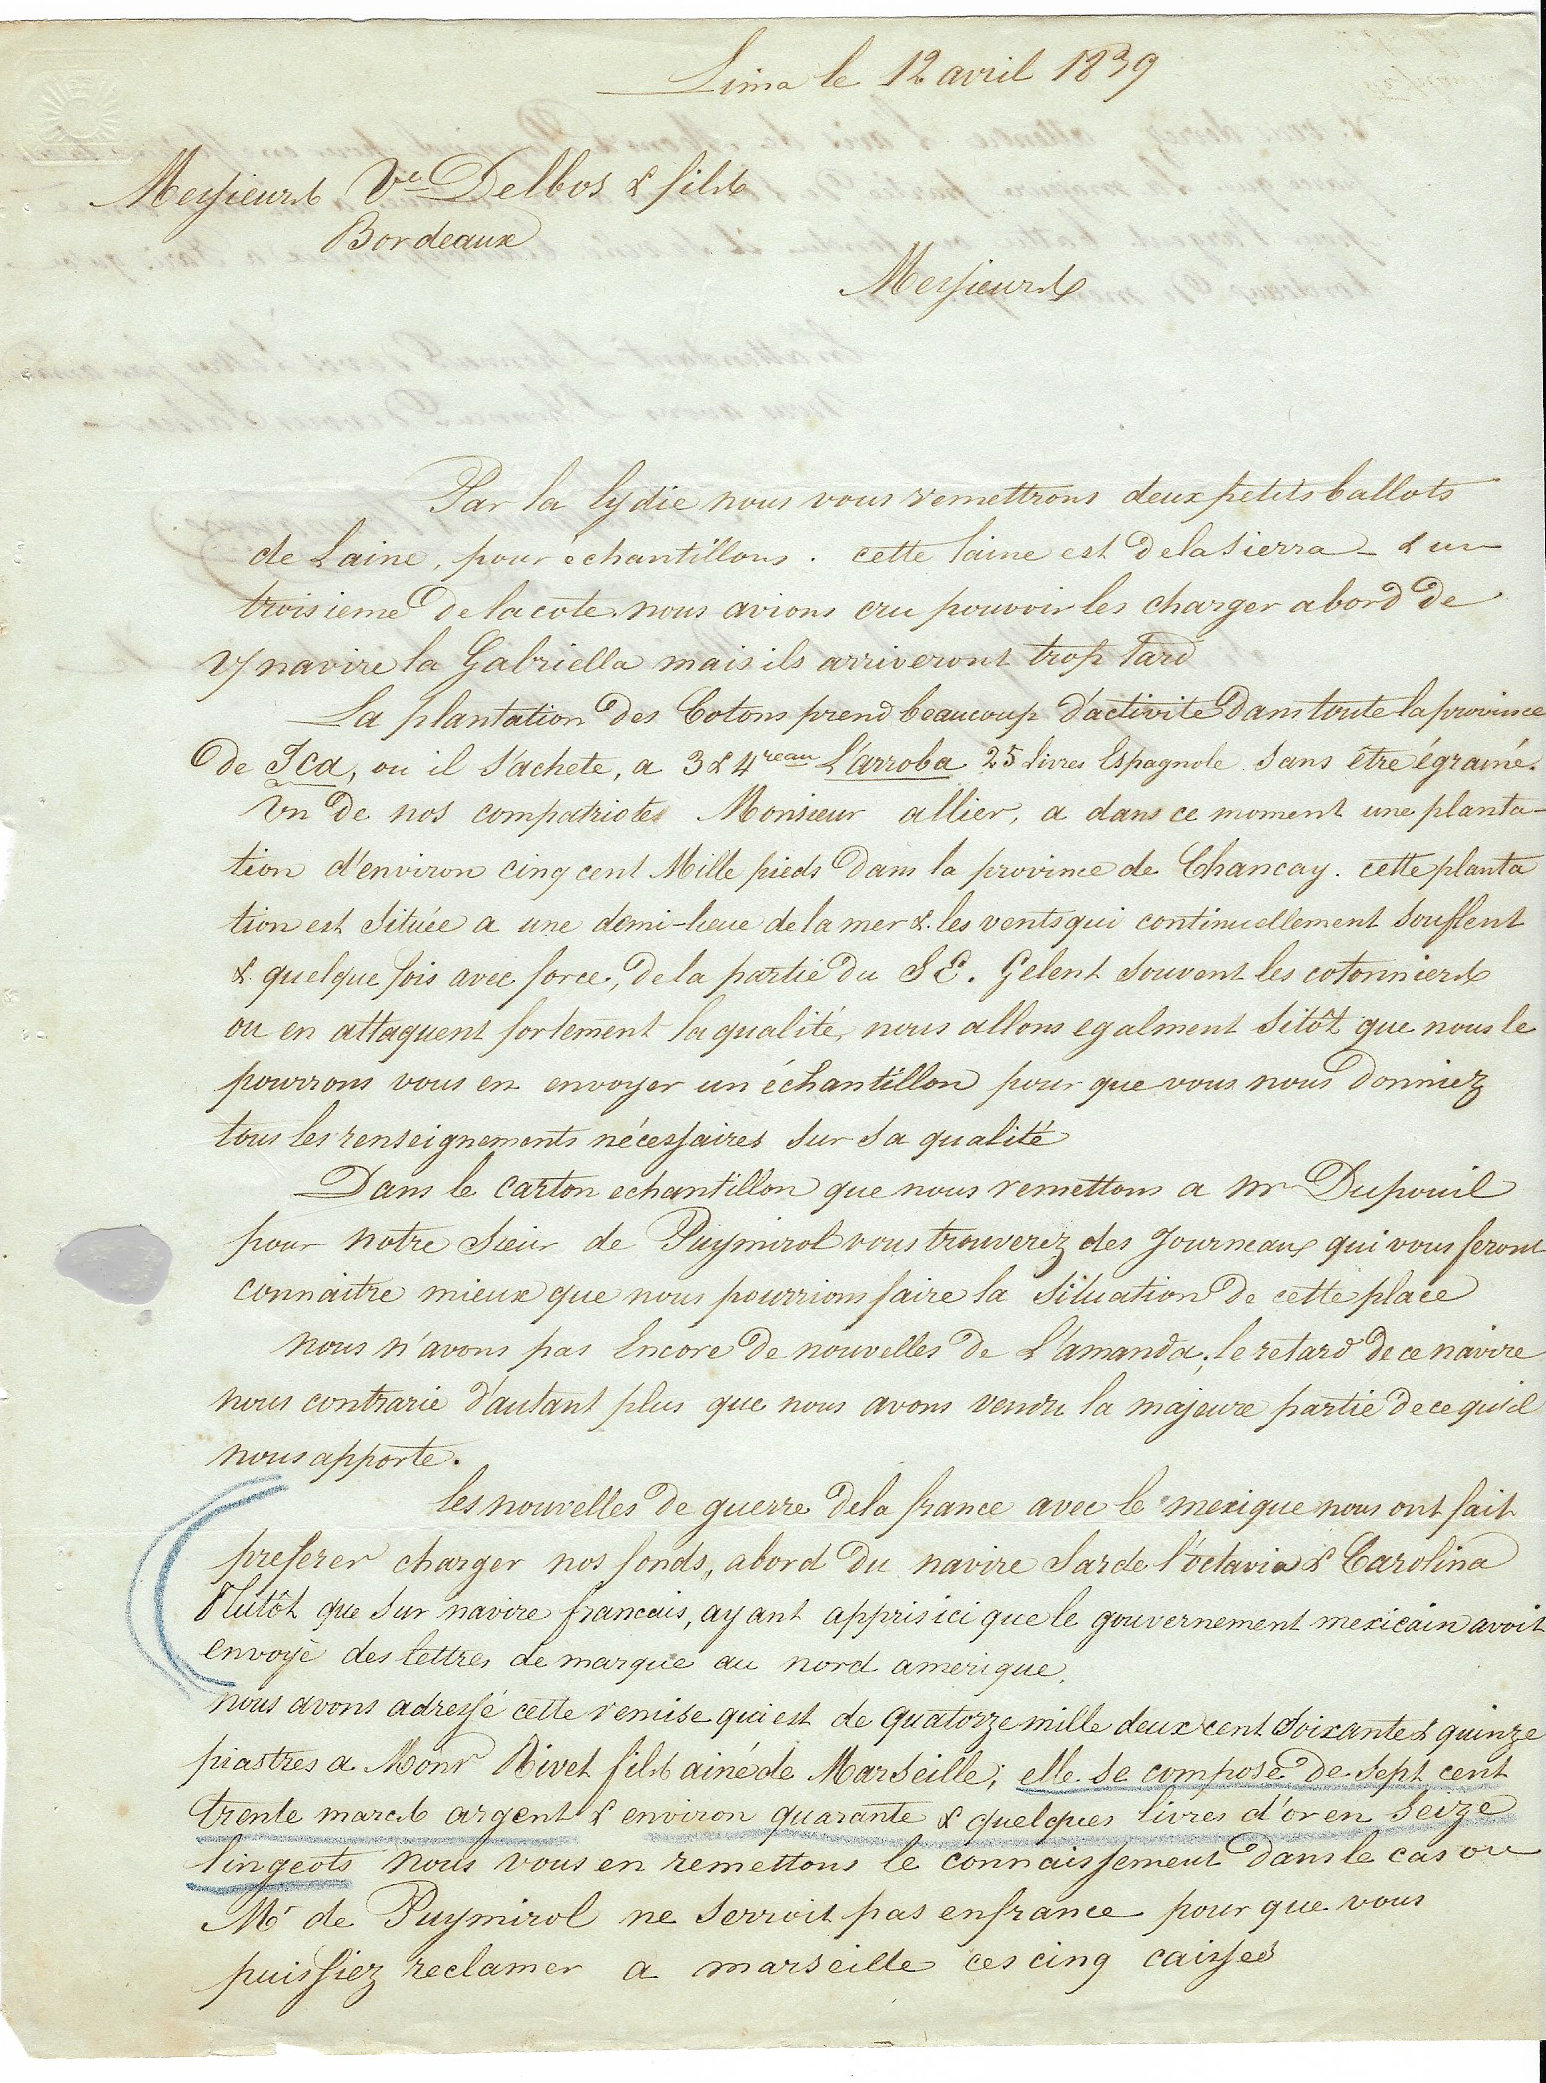 Lima le 12 avril 1839
Messieurs Ve Delbos & fils
Bordeaux
Messieurs
Par la lydie nous vous remettrons deux petits ballots
de Laine, pour échantillons. cette laine est de la Sierra & un
troisieme de la cote. nous avions cru pouvoir les charger abord de
v/ navire la Gabriella mais ils arriveront trop tard
La plantation des Cotons prend beaucoup d'activité dans toute la province
de Ica, ou il s'achete, a 3 & 4 reaux L'arroba 25 livres Espagnole sans être égrainé.
Un de nos compatriotes Monsieur allier, a dans ce moment une planta-
tion d'environ cinq cent Mille pieds dans la province de Chancay. cette planta
tion est située a une demi-lieue de la mer &. les vents qui continuellement souflent
& quelque fois avec force, de la partie du S E. Gelent souvent les cotonniers
ou en attaquent fortement la qualité, nous allons egalment sitôt que nous le
pourrons vous en envoyer un échantillon pour que vous nous donniez
tous les renseignements nécessaires sur sa qualité
Dans le carton echantillon que nous remettons a mr Dupouil
pour notre Sieur de Puymirol vous trouverez des Journeaux qui vous feront
connaitre mieux que nous pourrions faire la Situation de cette place
nous n'avons pas Encore de nouvelles de L'amanda, le retard de ce navire
nous contrarie d'autant plus que nous avons vendu la majeure partie de ce qu'il
nous apporte.
les nouvelles de guerre de la france avec le mexique nous ont fait
preferer charger nos fonds, abord du navire Sarde l'octavia & Carolina
Plutôt que sur navire francais, ayant appris ici que le gouvernement mexicain avoit
envoyé des lettres de marque au nord amerique.
nous avons adressé cette remise qui est de quatorze mille deux cent soixante & quinze
piastres a Monr Rivet fils ainé de Marseille; elle se compose de sept cent
trente marcs argent & environ quarante & quelques livres d'or en seize
lingeots nous vous en remettons le connaissement dans le cas ou
Mr de Puymirol ne serroit pas en france pour que vous
puissiez reclamer a marseille ces cinq caisses